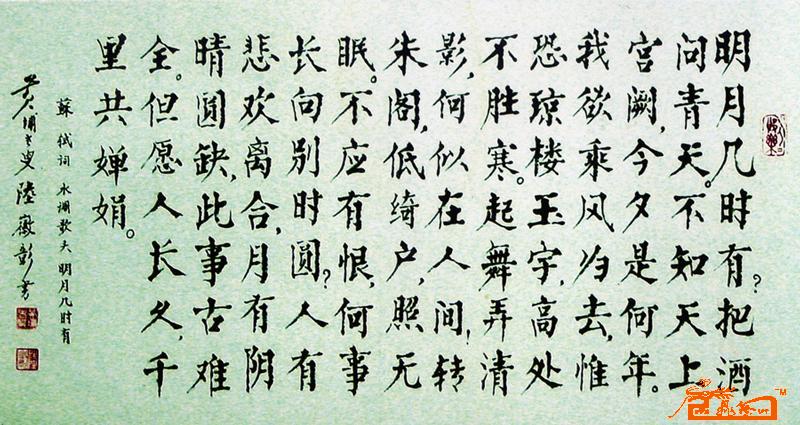 明月几时有?把酒
问青天。不知天上
宫阙,今夕是何年。
我欲乘风归去,惟
恐琼楼玉宇,高处
不胜寒。起舞弄清
影,何似在人间?转
朱阁,低绮户,照无
眠。不应有恨,何事
长向别时圆?人有
悲欢离合,月有阴
晴圆缺,此事古难
全。但愿人长久,千
里共婵娟。
蘇轼词 水调歌头 明月几时有
黄浦老叟 陸徽彰书